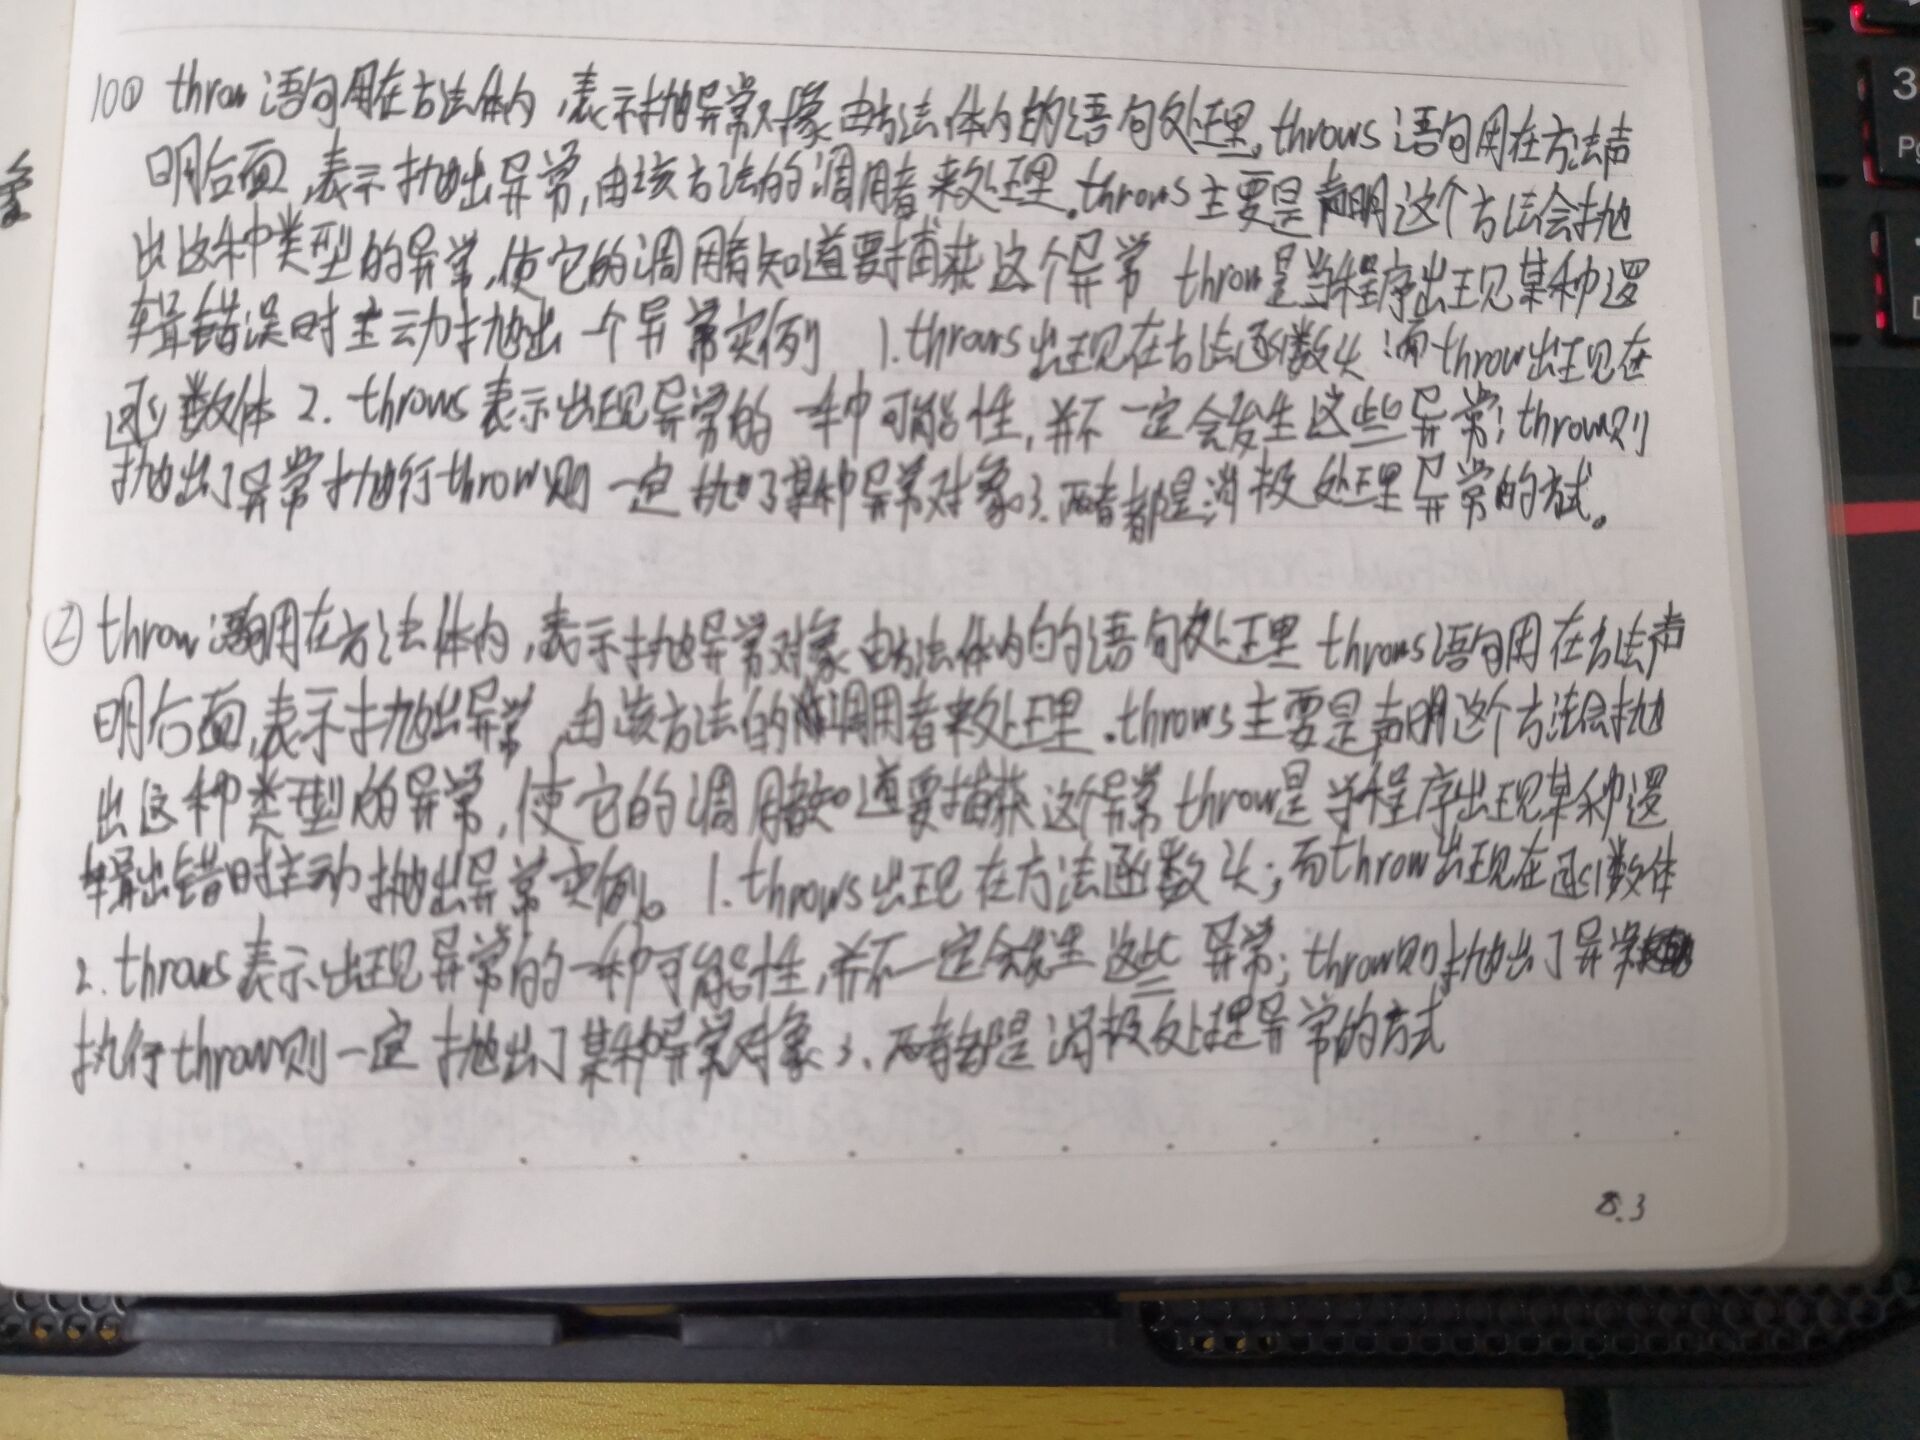 10① throw语句用在方法体内,表示抛异常对象由方法体内的语句处理,throws语句用在方法声
明后面,表示抛出异常,由该方法的调用者来处理.throws主要是声明这个方法会抛
出这种类型的异常,使它的调用者知道要捕获这个异常 throw是当程序出现某种逻
辑错误时主动抛出一个异常实例 1.throws出现在方法函数头;而throw出现在
函数体 2.throws表示出现异常的一种可能性,并不一定会发生这些异常;throw则
抛出了异常执行throw则一定抛了某种异常对象。3.两者都是消极处理异常的方式。
②throw语句用在方法体内,表示抛异常对象由方法体内的语句处理 throws语句用在方法声
明后面,表示抛出异常,由该方法的调用者来处理.throws主要是声明这个方法会抛
出这种类型的异常,使它的调用者知道要捕获这个异常throw是当程序出现某种逻
辑出错时主动抛出异常实例。1.throws出现在方法函数头;而throw出现在函数体
2.throws表示出现异常的一种可能性,并不一定会发生这些异常;throw则抛出了异常
执行throw则一定抛出了某种异常对象3.两者都是消极处理异常的方式
8.3